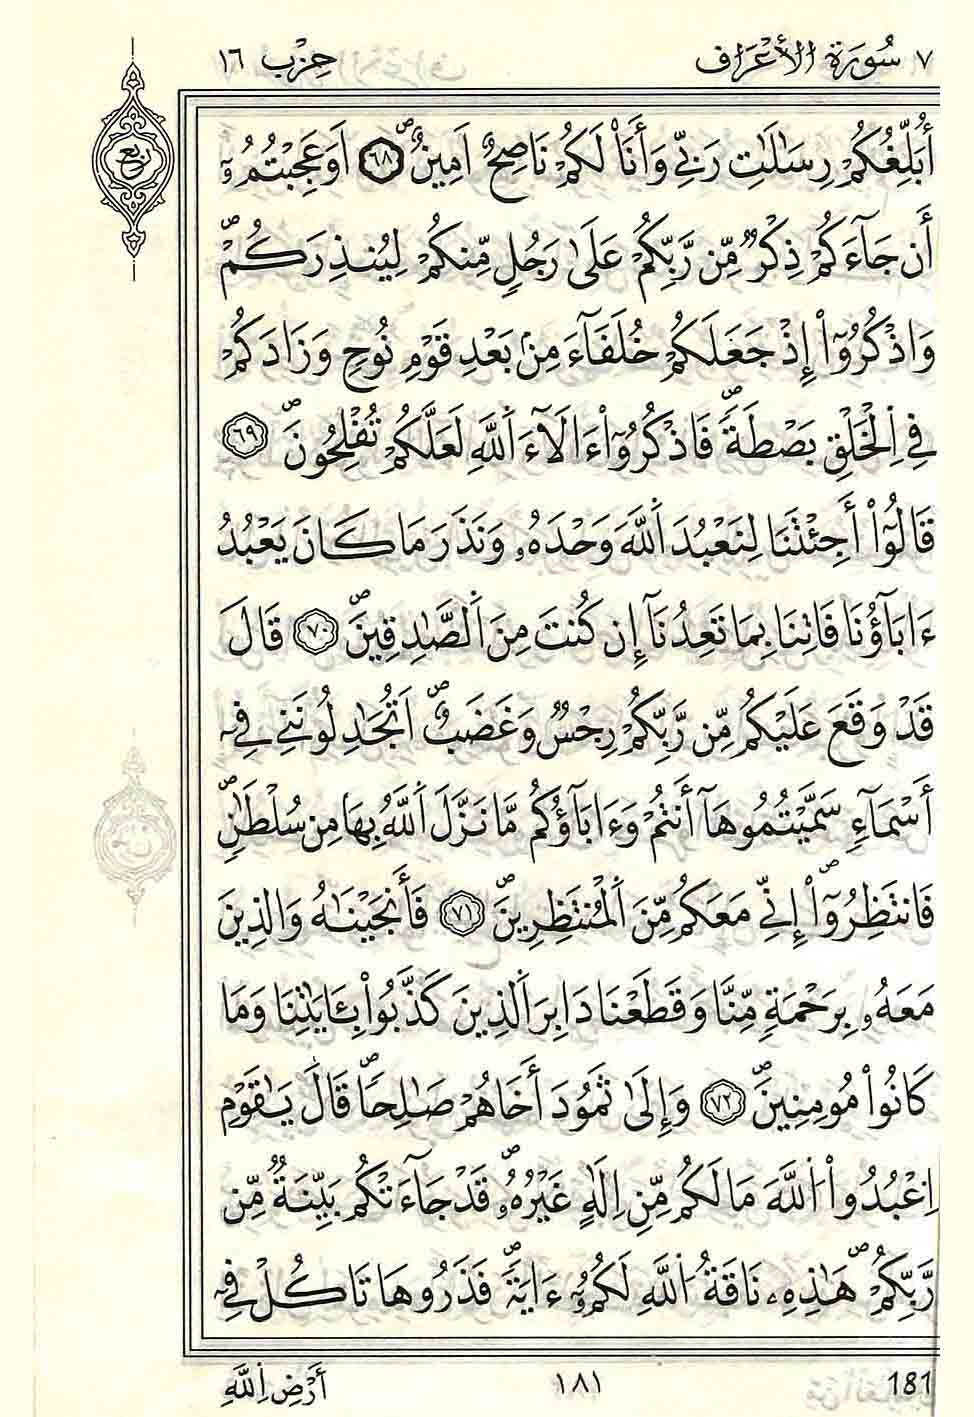 ٧ سُورَةُ الأَعْرَافِ حِزْب ١٦
رُبُع
أُبَلِّغُكُمْ رِسَٰلَٰتِ رَبِّي وَأَنَا۠ لَكُمْ نَاصِحٌ اَمِينٌ ۖ ٦٨ اَوَعَجِبْتُمُۥٓ
أَن جَآءَكُمْ ذِكْرٌ مِّن رَّبِّكُمْ عَلَىٰ رَجُلٍ مِّنكُمْ لِيُنذِرَكُمْ ۖ
وَاذْكُرُوٓاْ إِذْ جَعَلَكُمْ خُلَفَآءَ مِنۢ بَعْدِ قَوْمِ نُوحٍ وَزَادَكُمْ
فِي اِ۬لْخَلْقِ بَصْطَةً ۖ فَاذْكُرُوٓاْ ءَالَآءَ اَ۬للَّهِ لَعَلَّكُمْ تُفْلِحُونَ ۖ ٦٩
قَالُوٓاْ أَجِئْتَنَا لِنَعْبُدَ اَ۬للَّهَ وَحْدَهُۥ وَنَذَرَ مَا كَانَ يَعْبُدُ
ءَابَآؤُنَا فَاتِنَا بِمَا تَعِدُنَآ إِن كُنتَ مِنَ اَ۬لصَّٰدِقِينَ ۖ ٧٠ قَالَ
قَدْ وَقَعَ عَلَيْكُم مِّن رَّبِّكُمْ رِجْسٌ وَغَضَبٌ ۖ اَتُجَٰدِلُونَنِي فِيٓ
أَسْمَآءٍ سَمَّيْتُمُوهَآ أَنتُمْ وَءَابَآؤُكُم مَّا نَزَّلَ اَ۬للَّهُ بِهَا مِن سُلْطَٰنٍ ۖ
فَانتَظِرُوٓاْ ۖ إِنِّي مَعَكُم مِّنَ اَ۬لْمُنتَظِرِينَ ۖ ٧١ فَأَنجَيْنَٰهُ وَالذِينَ
مَعَهُۥ بِرَحْمَةٍ مِّنَّا وَقَطَعْنَا دَابِرَ اَ۬لذِينَ كَذَّبُواْ بِـَٔايَٰتِنَا وَمَا
كَانُواْ مُومِنِينَ ۖ ٧٢ وَإِلَىٰ ثَمُودَ أَخَاهُمْ صَٰلِحاً ۖ قَالَ يَٰقَوْمِ
اِ۟عْبُدُواْ اُ۬للَّهَ مَا لَكُم مِّنِ اِلَٰهٍ غَيْرُهُۥ ۖ قَدْ جَآءَتْكُم بَيِّنَةٌ مِّن
رَّبِّكُمْ ۖ هَٰذِهِۦ نَاقَةُ اُ۬للَّهِ لَكُمُۥٓ ءَايَةً ۖ فَذَرُوهَا تَاكُلْ فِيٓ
أَرْضِ اِ۬للَّهِ ١٨١ 181